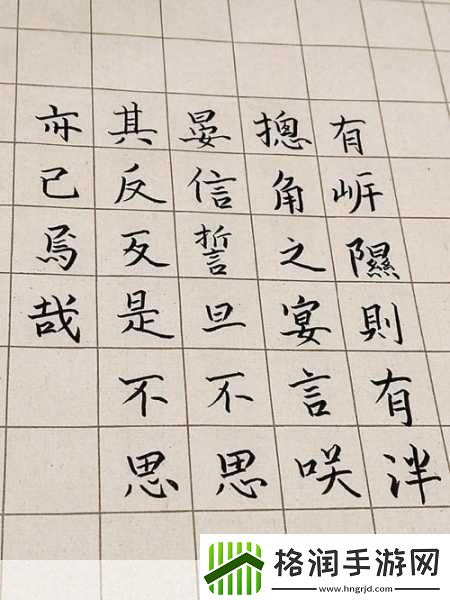 有岍隰則有泮
摠角之宴言咲
晏信誓旦不思
其反反是不思
亦己焉哉
格润手游网
www.hngrjd.com